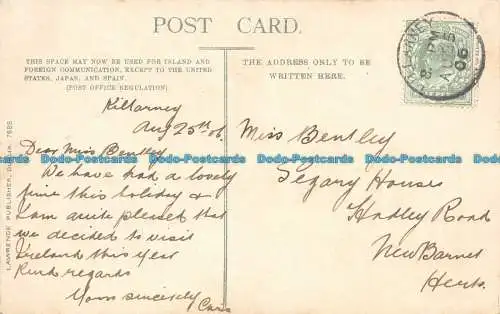 POST CARD.
THIS SPACE MAY NOW BE USED FOR INLAND AND
FOREIGN COMMUNICATION, EXCEPT TO THE UNITED
STATES, JAPAN, AND SPAIN.
(POST OFFICE REGULATION).
THE ADDRESS ONLY TO BE
WRITTEN HERE.
Killarney
Aug 25th 06.
Dear Miss Bentley
We have had a lovely
time this holiday &
I am quite pleased that
we decided to visit
Ireland this year
Kind regards
Yours sincerely
Miss Bentley
Segary House
Hadley Road
New Barnet
Herts.
LAWRENCE, PUBLISHER, DUBLIN.
KILLARNEY
06
Postcards Postcards Postcards Postcards Postcards Postcards